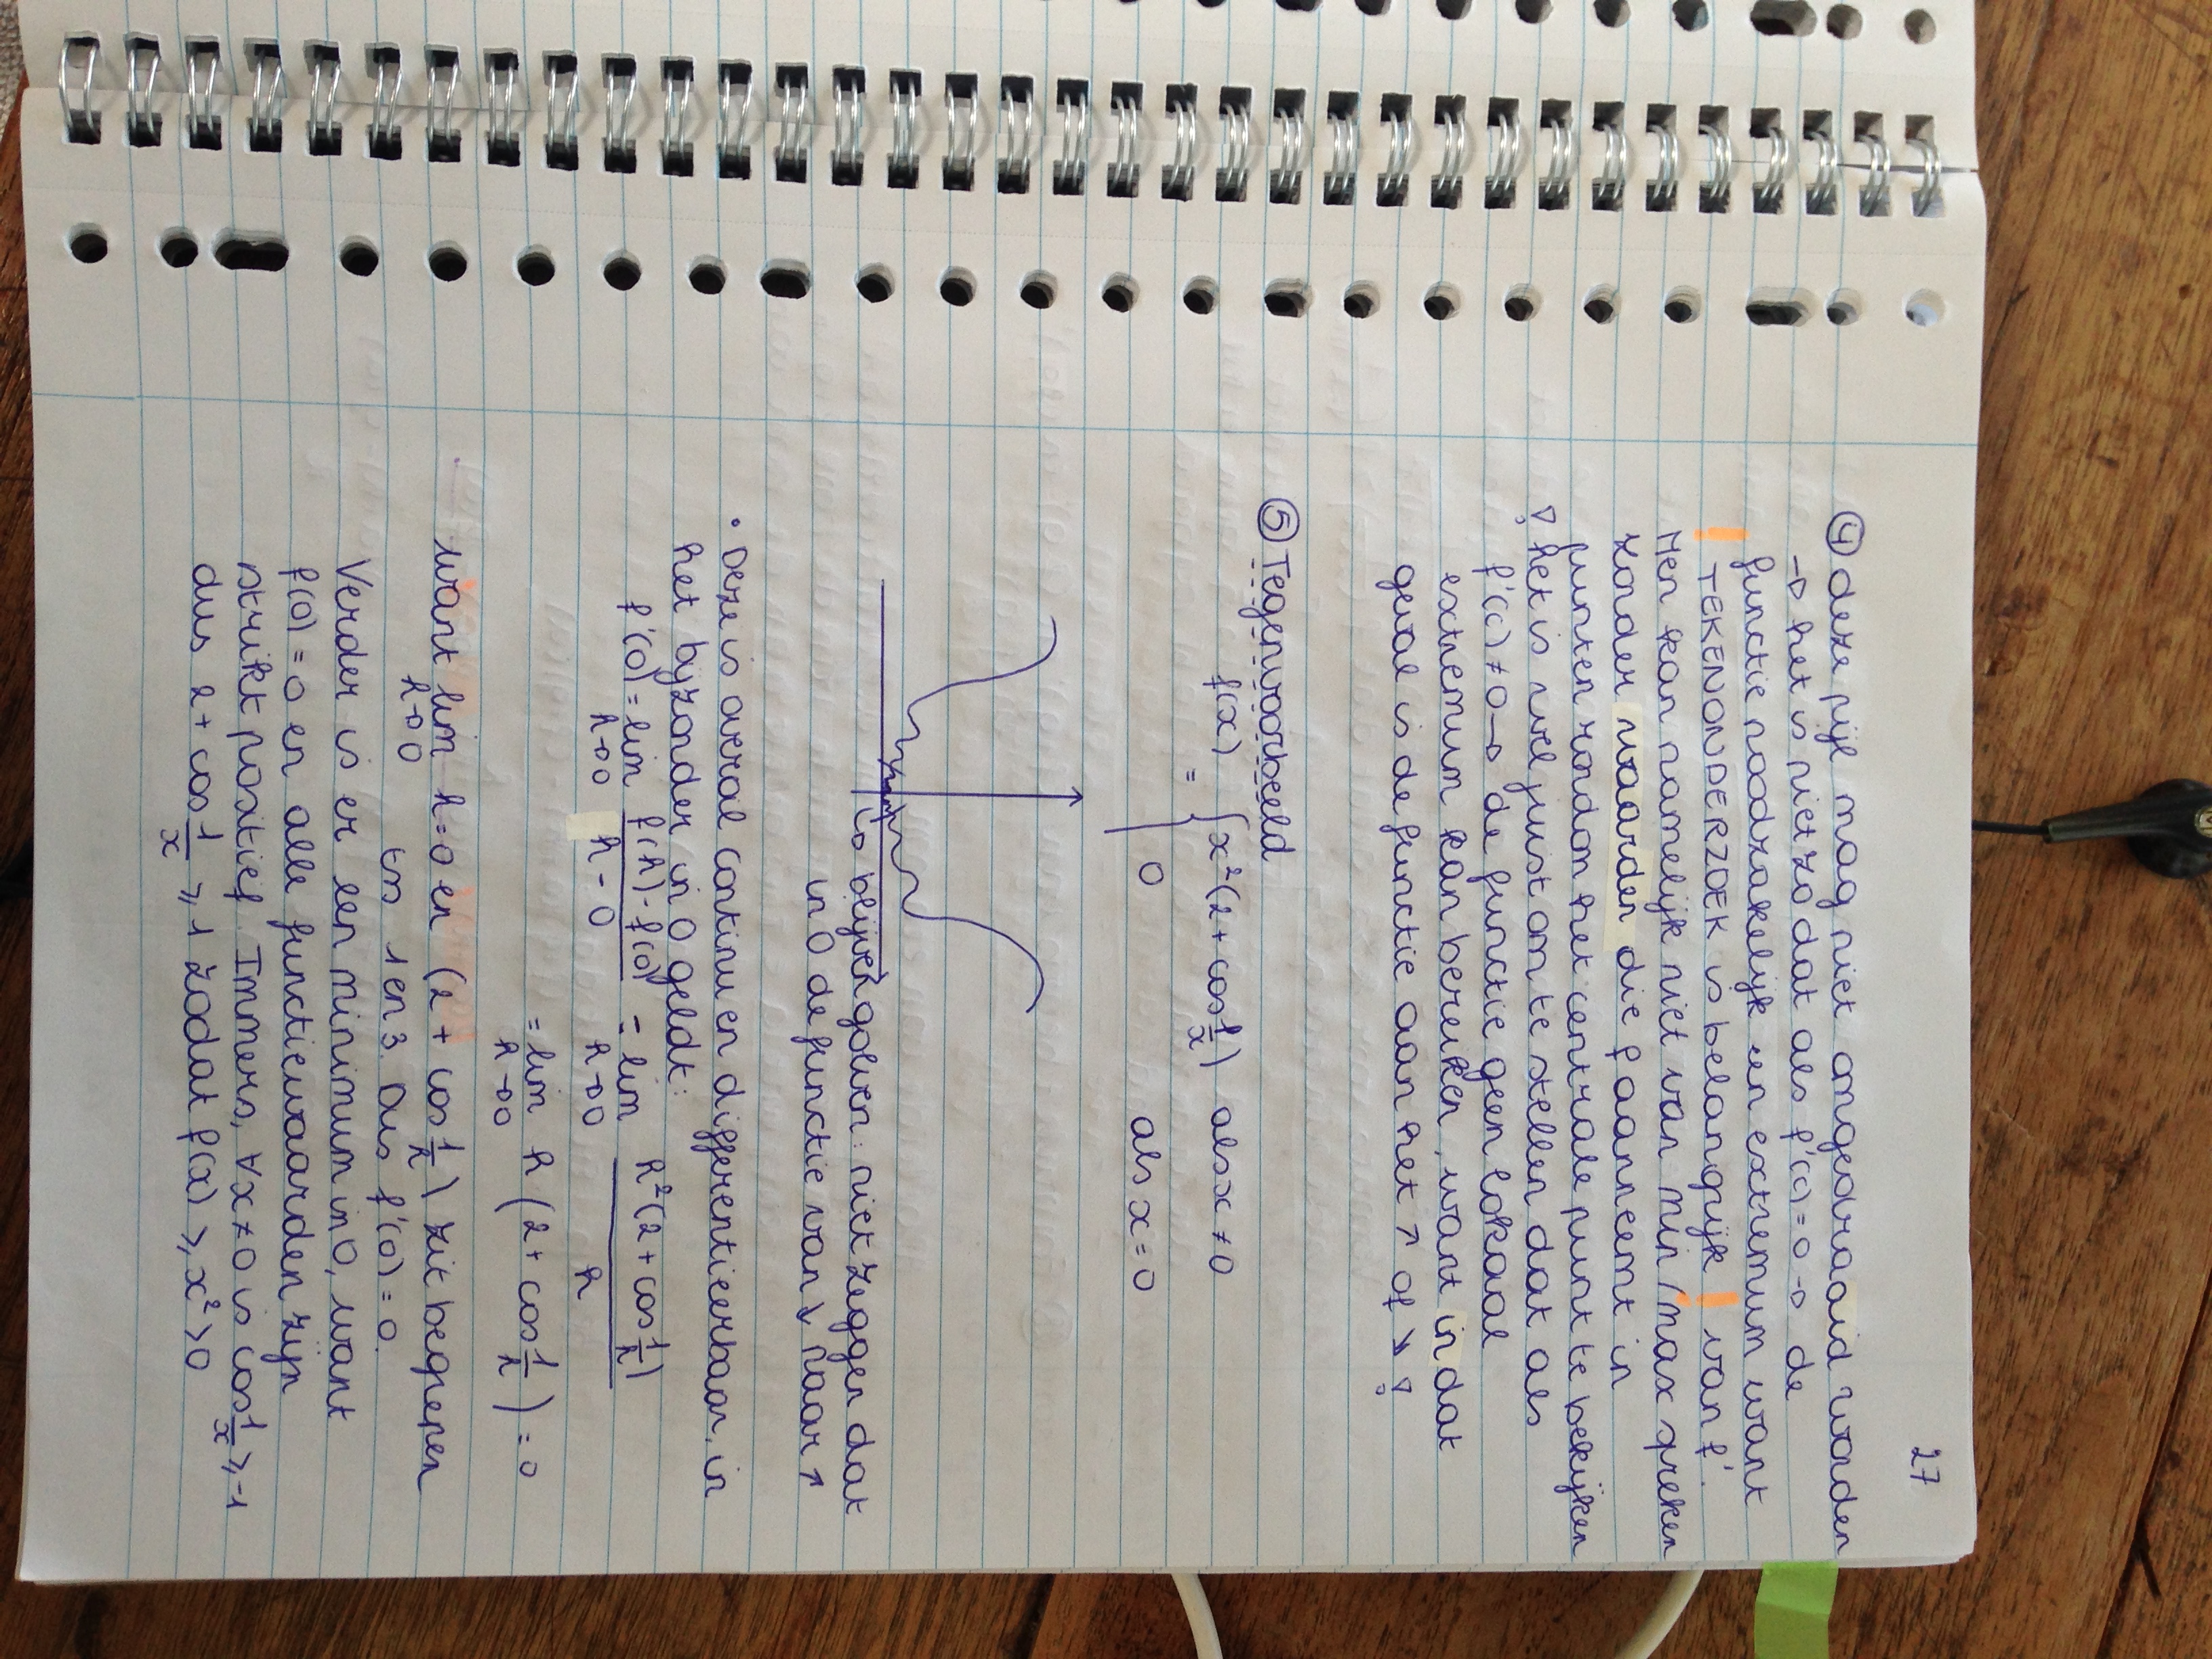 27
④ deze pijl mag niet omgedraaid worden
→ het is niet zo dat als f'(c) = 0 → de
functie noodzakelijk een extremum want
! TEKENONDERZOEK is belangrijk ! van f'.
Men kan namelijk niet van min / max spreken
zonder waarden die f aanneemt in
punten rondom het centrale punt te bekijken
! het is wel juist om te stellen dat als
f'(c) ≠ 0 → de functie geen lokaal
extremum kan bereiken, want in dat
geval is de functie aan het ↗ of ↘ !
⑤ Tegenvoorbeeld
f(x) = { x²(2 + cos 1/x) als x ≠ 0
0 als x = 0
↳ blijven golven: niet zeggen dat
in 0 de functie van ↘ naar ↗
• Deze is overal continu en differentieerbaar, in
het bijzonder in 0 geldt:
f'(0) = lim h→0 (f(h) - f(0))/(h - 0) = lim h→0 h²(2 + cos 1/h)/h
= lim h→0 h (2 + cos 1/h) = 0
want lim h→0 h = 0 en (2 + cos 1/h) zit begrepen
tss 1 en 3. Dus f'(0) = 0.
Verder is er een minimum in 0, want
f(0) = 0 en alle functiewaarden zijn
strikt positief. Immers, ∀x ≠ 0 is cos 1/x ⩾ -1
dus 2 + cos 1/x ⩾ 1 zodat f(x) ⩾ x² > 0